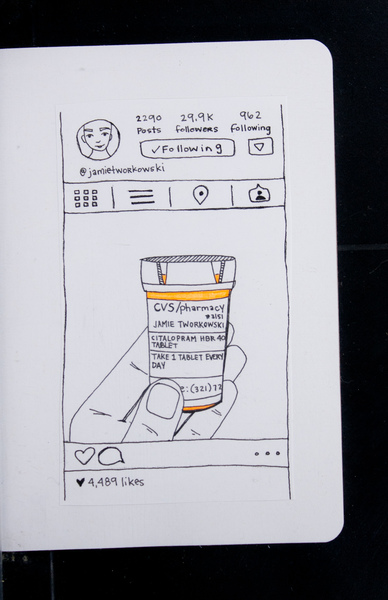 2290 29.9K 962
Posts followers following
✓Following
@jamietworkowski
CVS/pharmacy
#3151
JAMIE TWORKOWSKI
CITALOPRAM HBR 40
TABLET
TAKE 1 TABLET EVERY
DAY
e:(321)72
4,489 likes